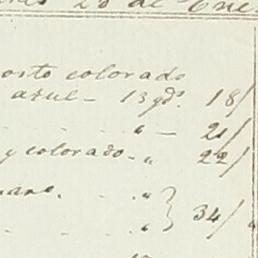 28 de Ene
osto colorado
azul - 13 gds. 18/
" - 21/
y colorado - " 22/
"
" } 34/